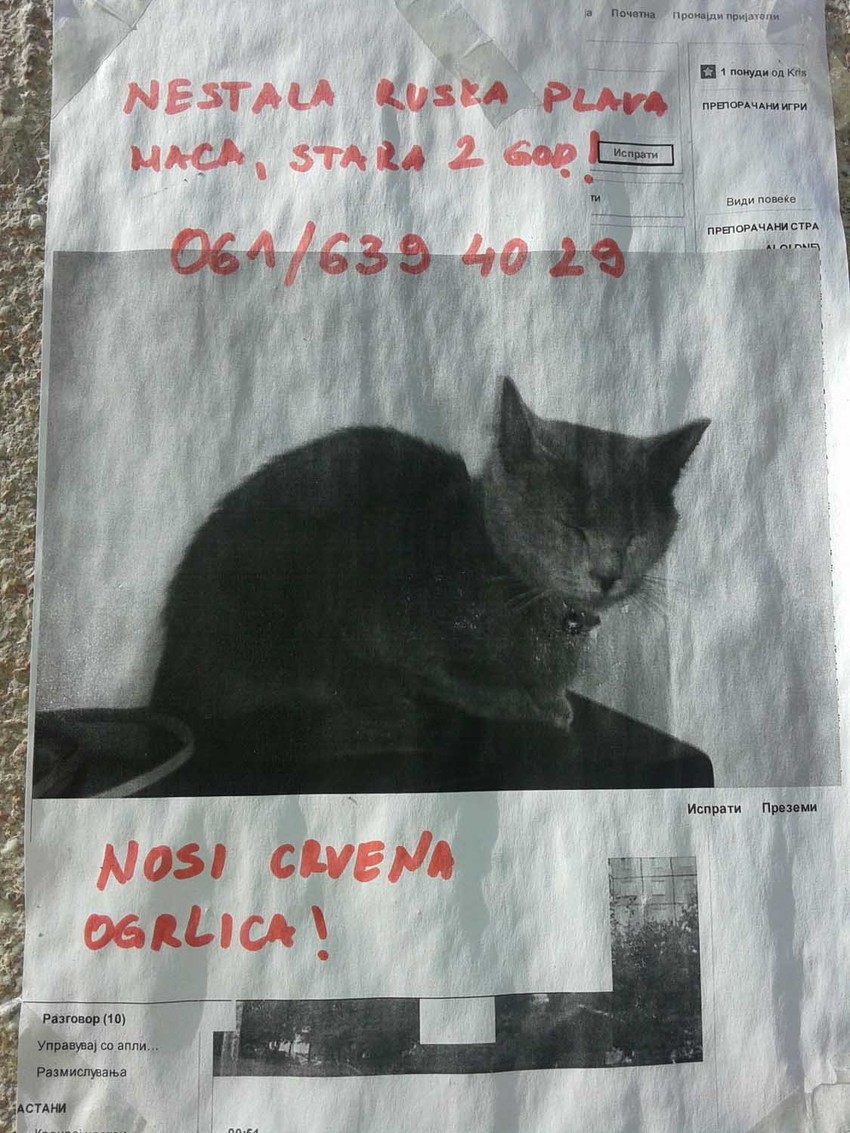 Почетна Пронајди пријатели
1 понуди од Kris
ПРЕПОРАЧАНИ ИГРИ
NESTALA RUSKA PLAVA
MACA, STARA 2 GOD!
Испрати
Види повеќе
ти
ПРЕПОРАЧАНИ СТРА
061/639 40 29
Испрати Преземи
NOSI CRVENA
OGRLICA!
Разговор (10)
Управувај со апли...
Размислувања
АСТАНИ